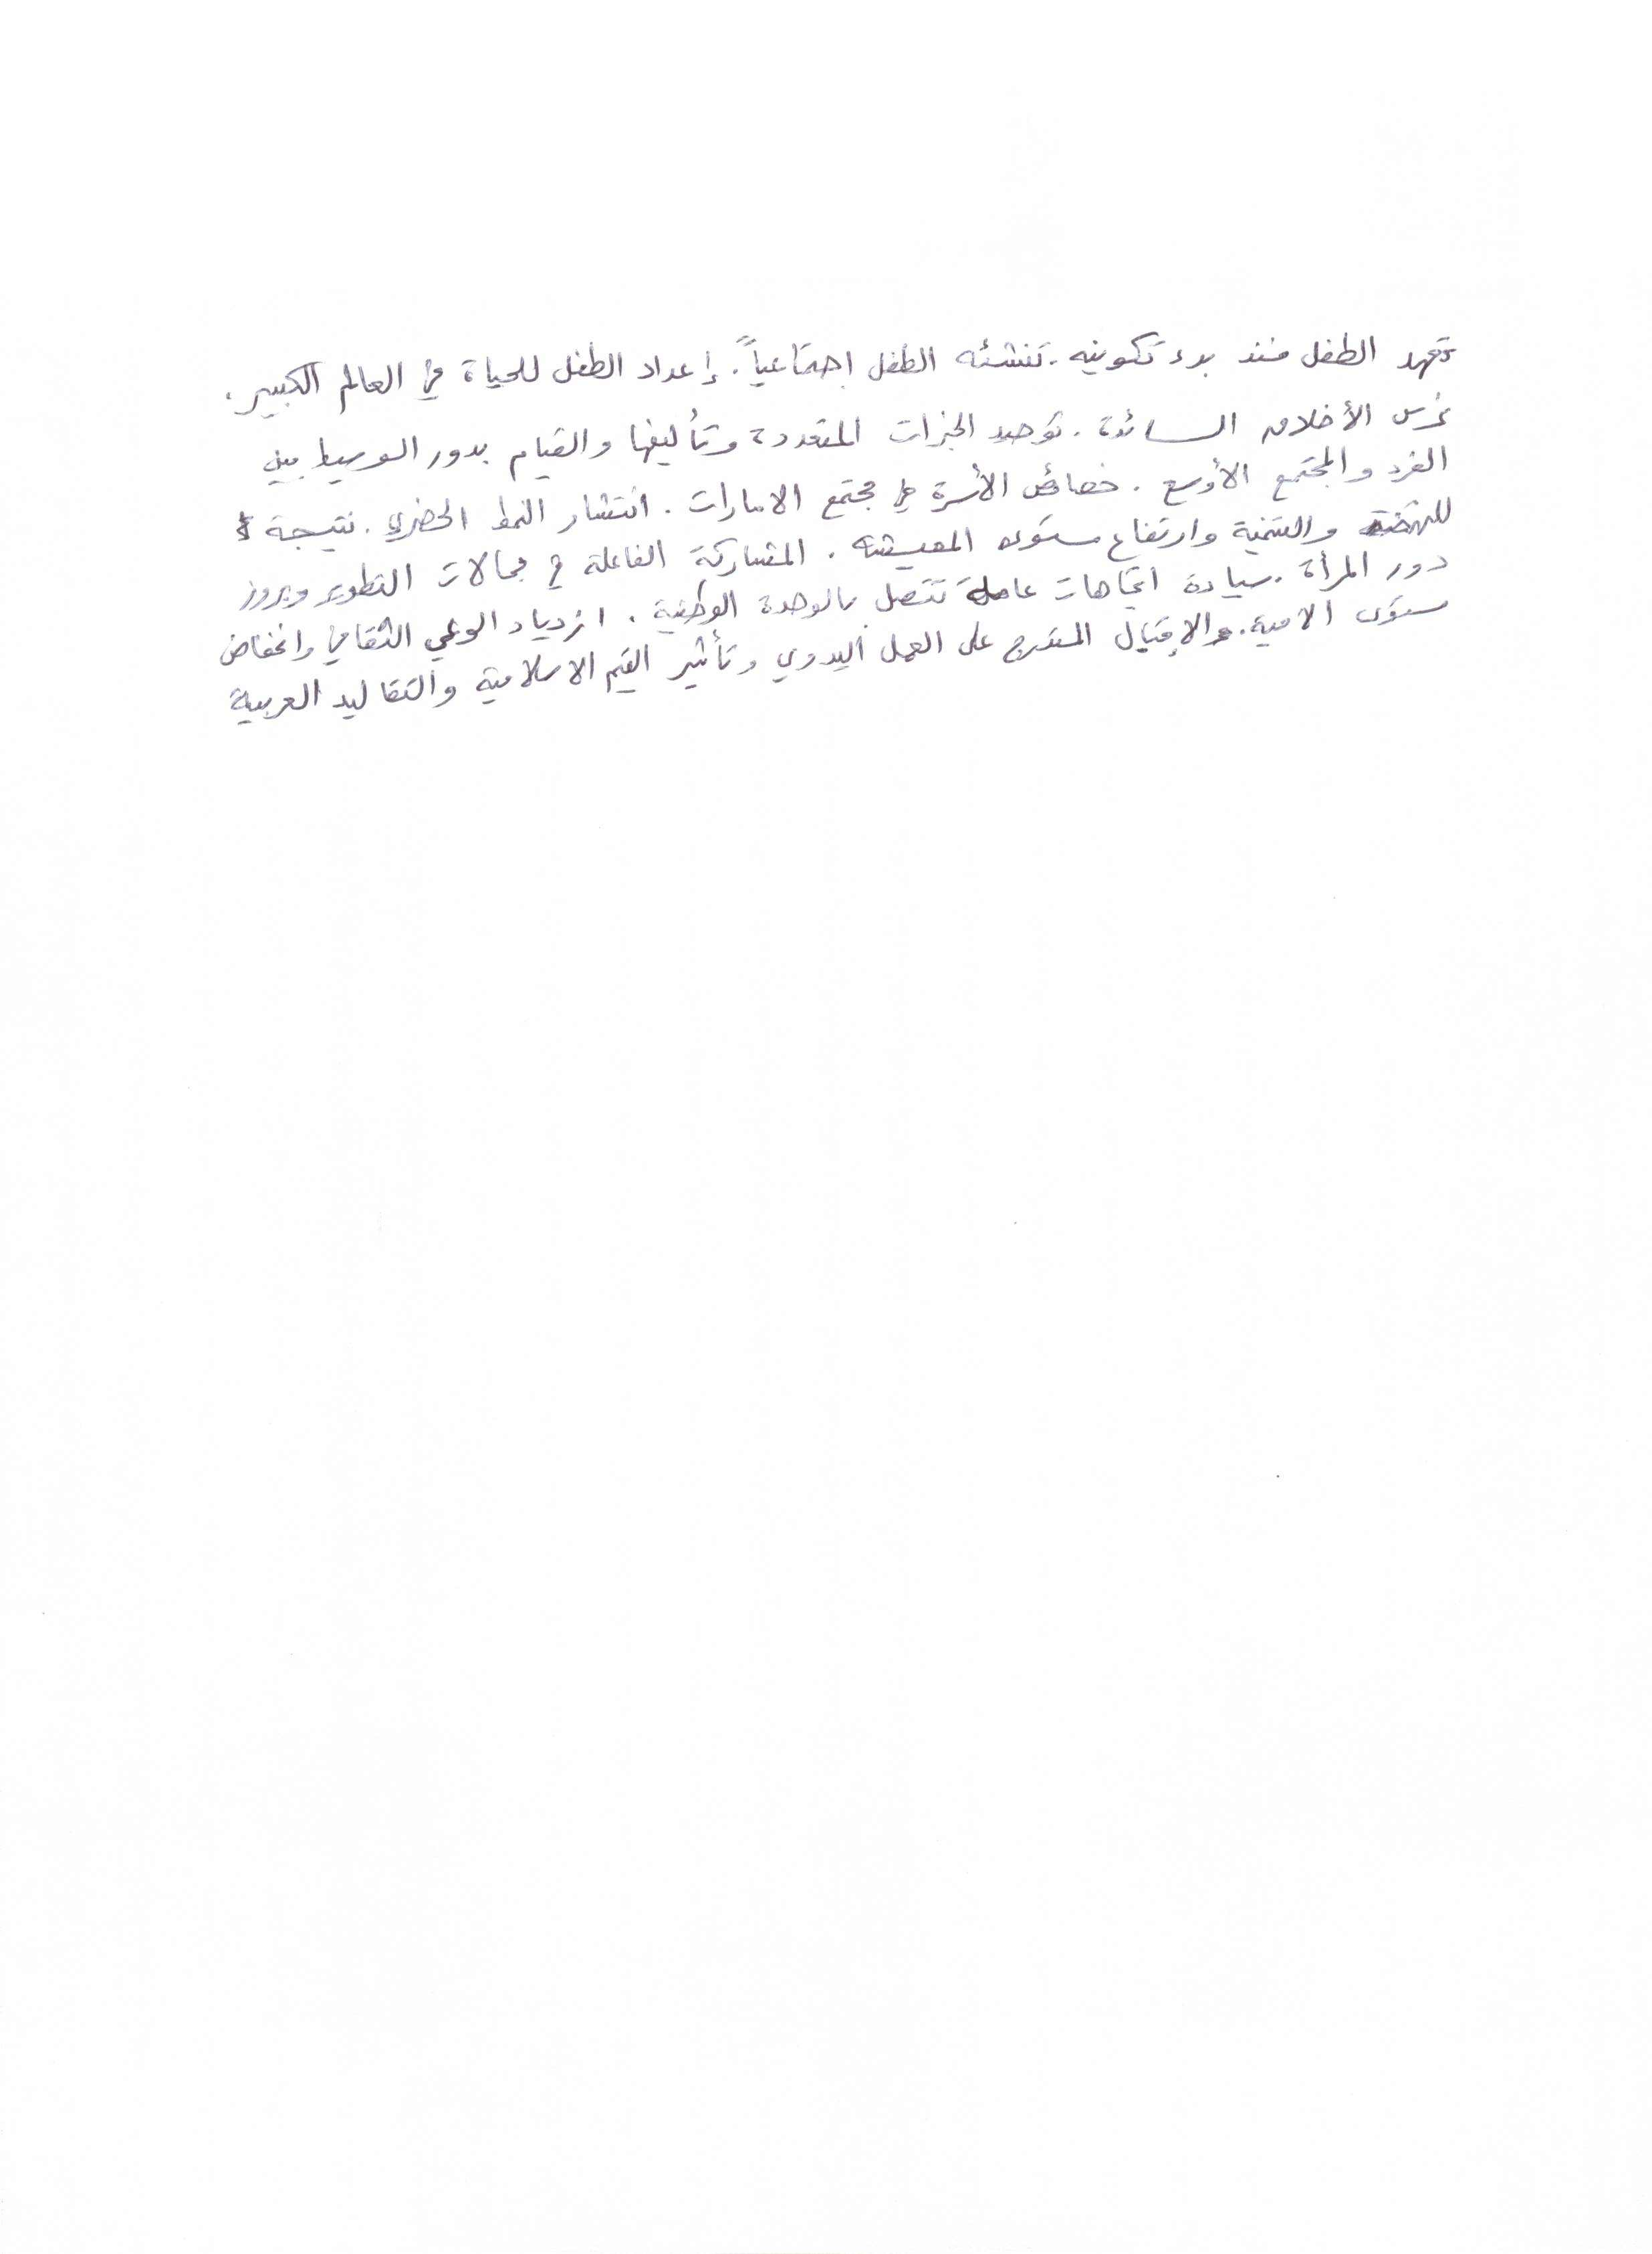 تعهد الطفل منذ بدء تكوينه. تنشئه الطفل اجتماعياً. إعداد الطفل للحياة في العالم الكبير.
غرس الأخلاق السائدة. توحيد الخبرات المتعددة وتأليفها والقيام بدور الوسيط بين
الفرد والمجتمع الأوسع. خصائص الأسرة في مجتمع الامارات. انتشار النمط الحضري. نتيجة
للنهضة والتنمية وارتفاع مستوى المعيشه. المشاركة الفاعلة في مجالات التطوير وبروز
دور المرأة. سيادة اتجاهات عاملة تتصل بالوحدة الوطنية. ازدياد الوعي الثقافي وانخفاض
مستوى الامية. والإقبال المتدرج على العمل اليدوي وتأثير القيم الاسلامية والتقاليد العربية